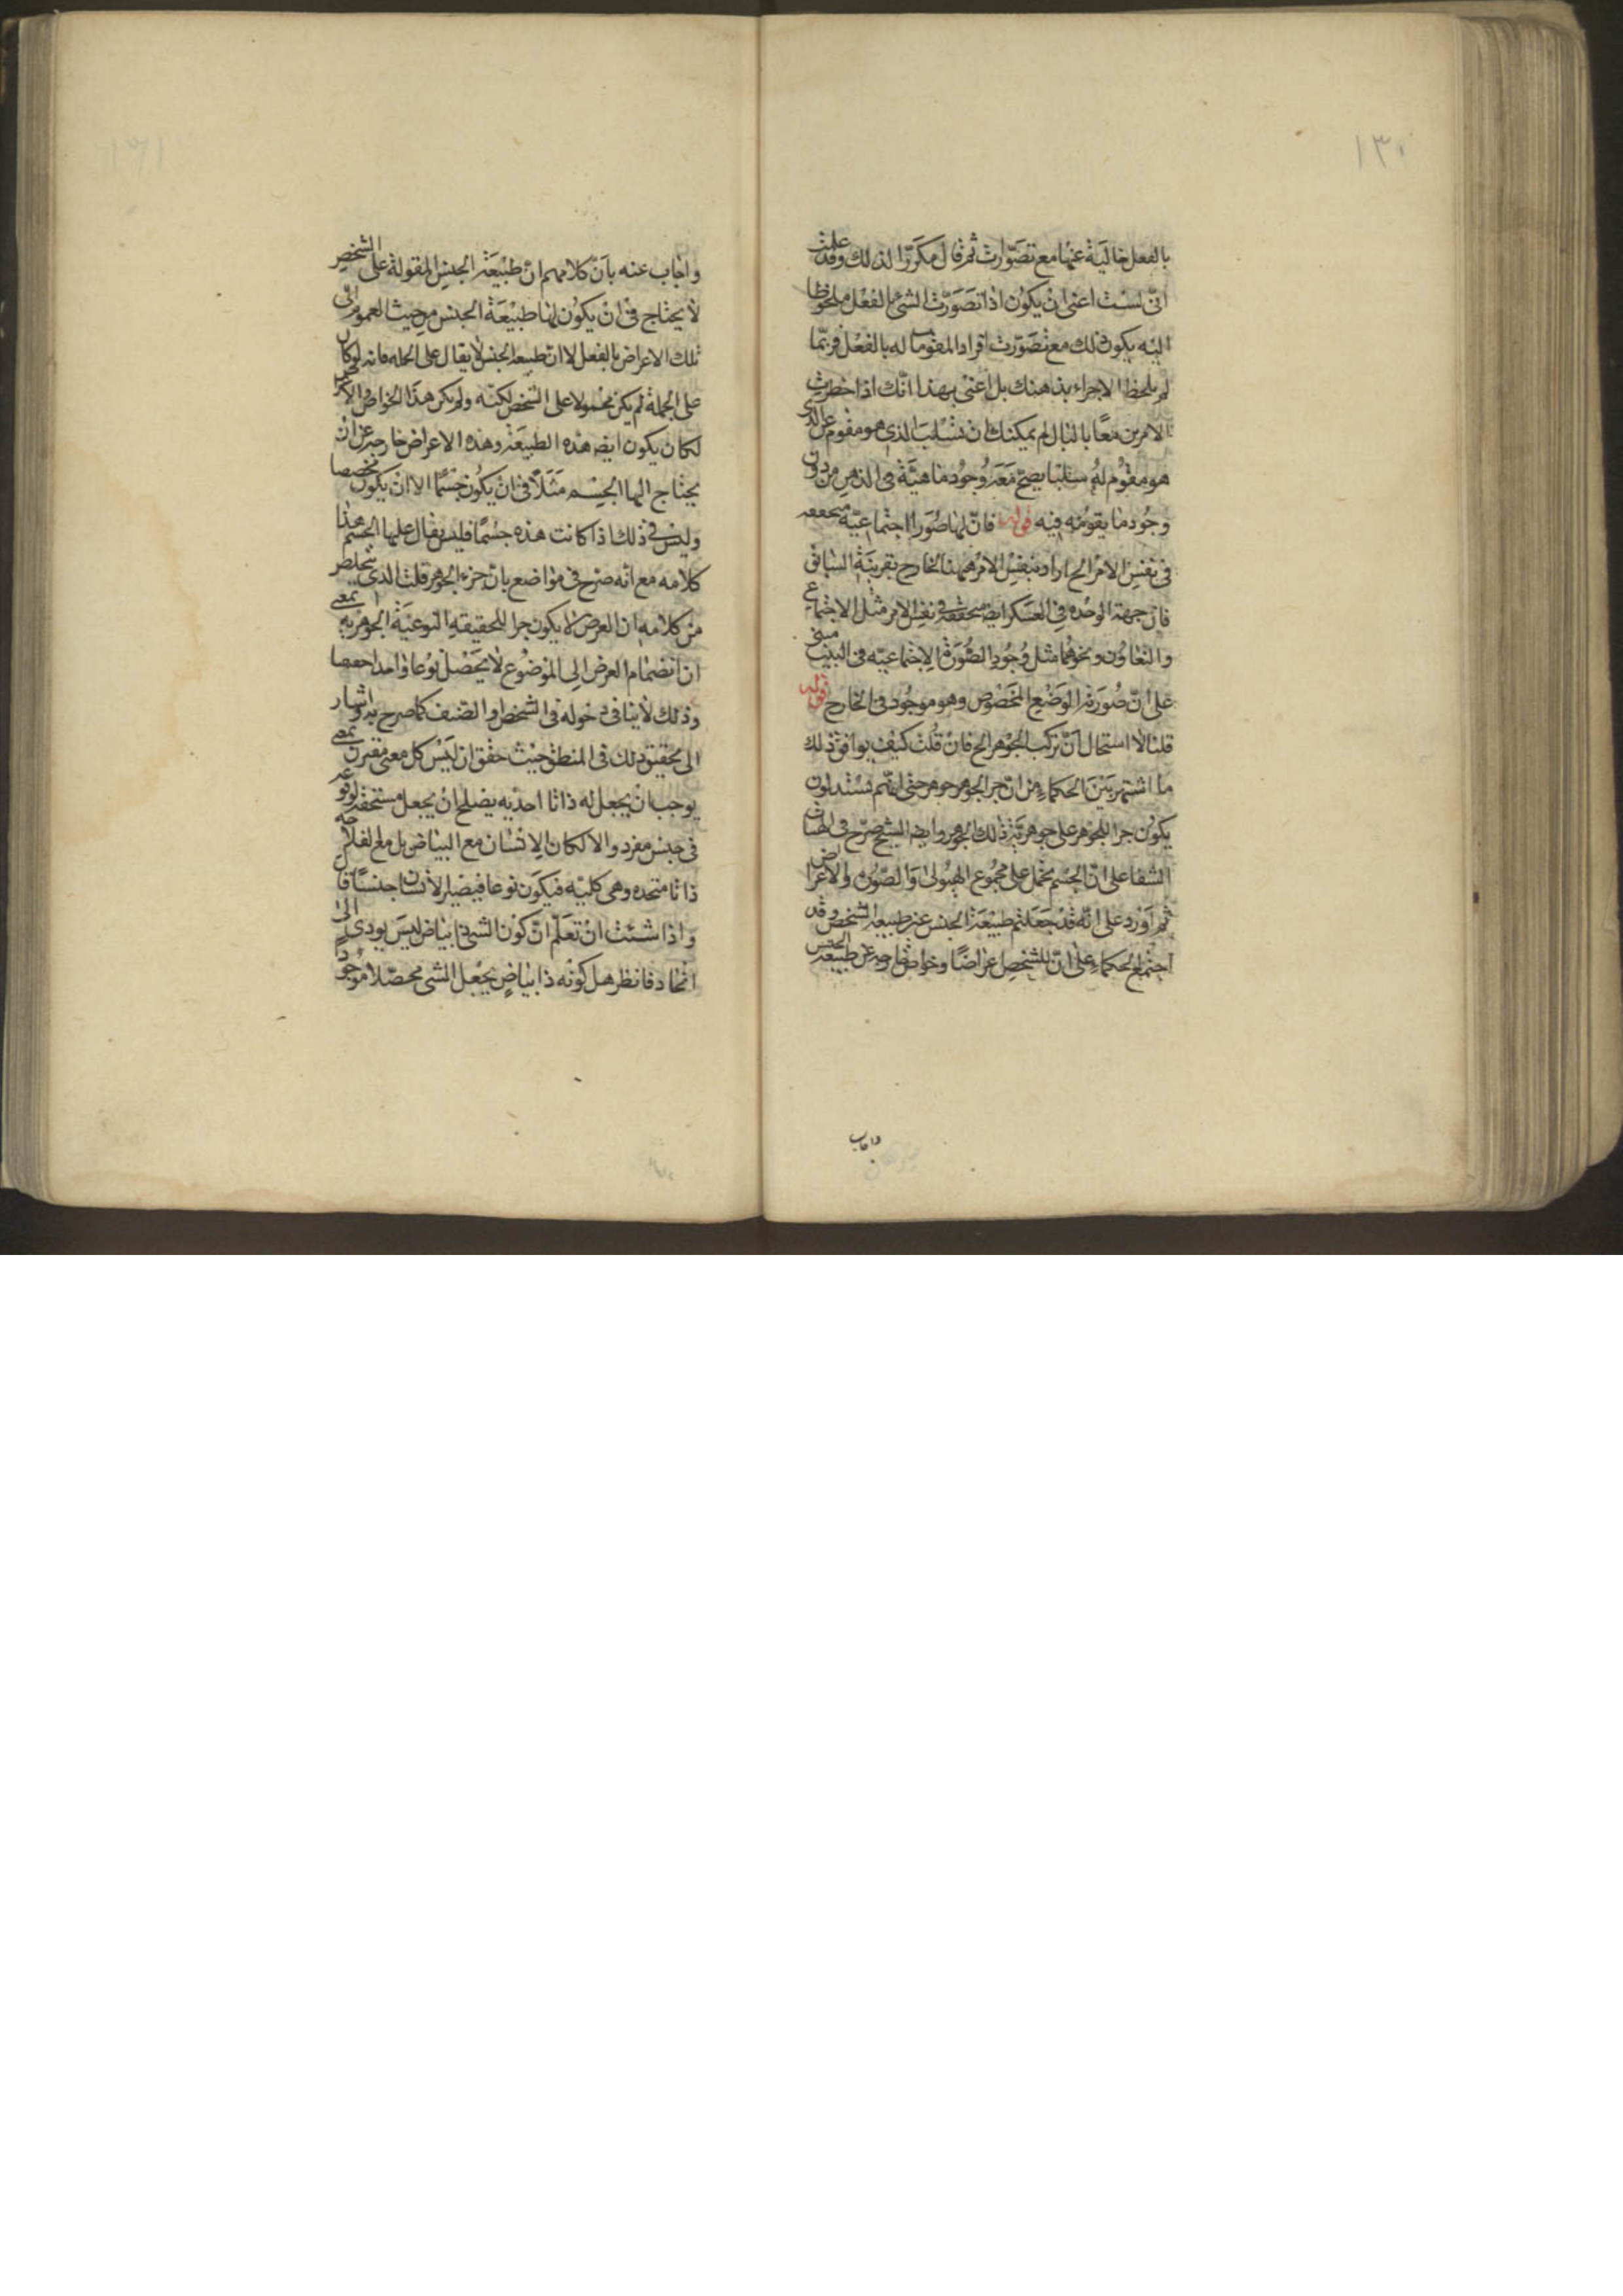 ١٣٠
بالفعل خالية عنها مع تصورات ثم قال مكررا لذلك وقد علمت
انى لست اعنى ان يكون اذا تصورت الشئ بالفعل ملحوظا
اليه يكون ذلك مع تصورت افراد المقومات له بالفعل فربما
لم يلحظ الاجزاء بذهنك بل اعنى بهذا انك اذا اخطرت
الامرين معا بالبال لم يمكنك ان تسلب الذى هو مقوم عن الذى
هو مقوم له سلبا يصح معه وجود ماهية فى الذهن من دون
وجود ما يقومه فيه قوله فان لها صورا اجتماعية متحققه
فى نفس الامر الخ اراد بنفس الامر ههنا الخارج بقرينة السابق
فان جهة الوحده فى العسكر ايضا متحققة فى نفس الامر مثل الاجتماع
والتعاون ونحوهما مثل وجود الصورة الاجتماعيه فى البيت مبنى
على ان صورته الوضع المخصوص وهو موجود فى الخارج قوله
قلنا لا استحال ان تركب الجوهر الخ فان قلت كيف يوافق ذلك
ما اشتهر بين الحكماء من ان جزا الجوهر جوهر حتى انهم يستدلون
يكون جزا للجوهر على جوهرية ذلك الجوهر وايضا الشيخ صرح فى الهيات
الشفا على ان الجسم يحمل على مجموع الهيولى والصور والاعراض
ثم اورد على انه قد جعلتم طبيعة الجنس عن طبيعه الشخص وقد
اجتمع الحكماء على ان للشخص اعراضا وخواص خارجه عن طبيعه الجنس
واجاب
واجاب عنه بان كلامهم ان طبيعة الجنس المقولة على الشخص
لا يحتاج فى ان يكون لها طبيعة الجنس من حيث العموم الى
تلك الاعراض بالفعل لا ان طبيعه الجنس لا يقال على الجمله فانه لو كان
على الجملة لم يكن محمولا على الشخص لكنه ولو لم يكن هذا الخواص والاعراض
لكان يكون ايضا هذه الطبيعة وهذه الاعراض خارجه عن ان
يحتاج اليها الجسم مثلا فى ان يكون جسما الا ان يكون مخصصا
وليس فى ذلك اذا كانت هذه جسما فليس يقال عليها الجسم هذا
كلامه مع انه صرح فى مواضع بان جزء الجوهر قلت الذى يتخلص
من كلامه ان العرض لا يكون جزا للحقيقه النوعية الجوهريه بمعنى
ان انضمام العرض الى الموضوع لا يحصل نوعا واحدا
وذلك لا ينافى دخوله فى الشخص او الصنف كما صرح به واشار
الى تحقيق ذلك فى المنطق حيث حقق ان ليس كل معنى مقترن بمعنى
يوجب ان يجعل له ذاتا احديه يصلح ان يجعل مستحقه لوقوعه
فى جنس مفرد والا لكان الانسان مع البياض بل مع الفلاحه
ذاتا متحده وهى كليه فيكون نوعا فيصير الانسان جنسا قال
واذا شئت ان تعلم ان كون الشئ ذا بياض ليس يودى الى
اتحاد فانظر هل كونه ذا بياض يجعل الشئ محصلا موجودا